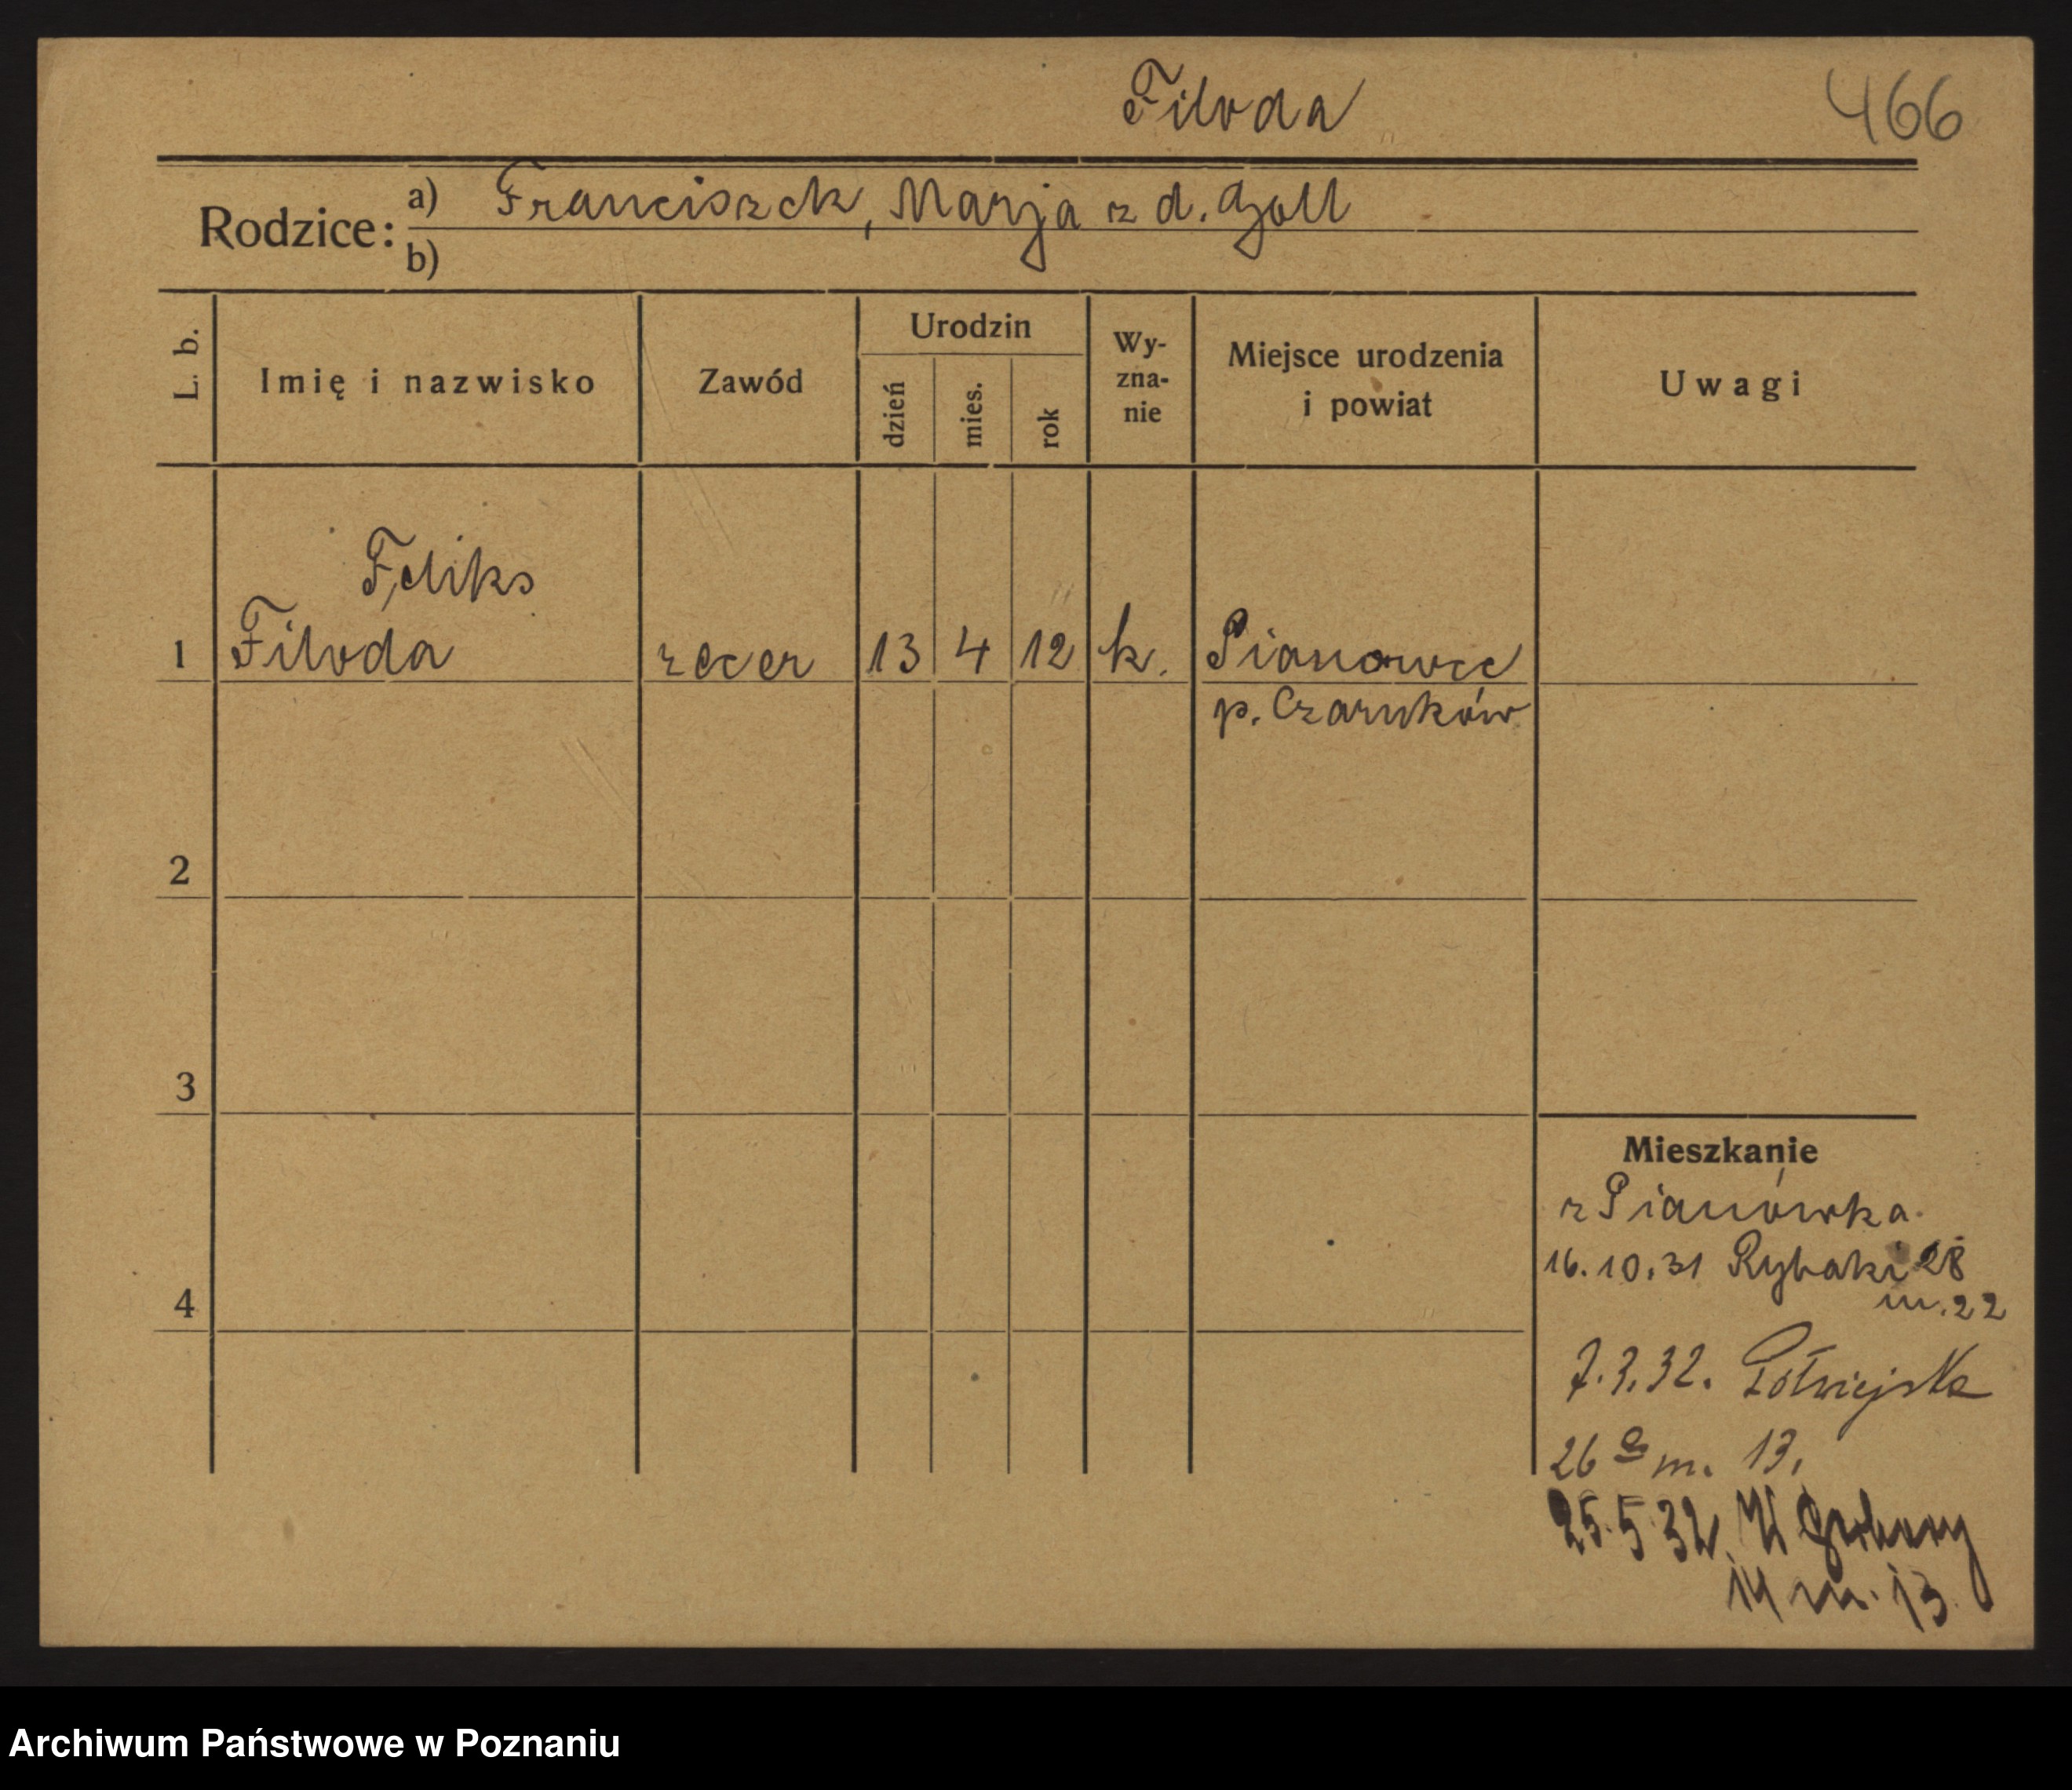 Filoda
466
Rodzice:
a) Franciszek, Marja z d. Goll
b)
L. b.
Imię i nazwisko
Zawód
Urodzin
dzień
mies.
rok
Wy-
zna-
nie
Miejsce urodzenia
i powiat
Uwagi
Feliks
1 Filoda zecer 13 4 12 k. Pianowce
p. Czarnków
2
3
4
Mieszkanie
z Pianówka.
16.10.31 Rybaki 28
m. 22
7.3.32. Półwiejska
26 a m. 13.
25.5.32 W Garbary
14 m. 13